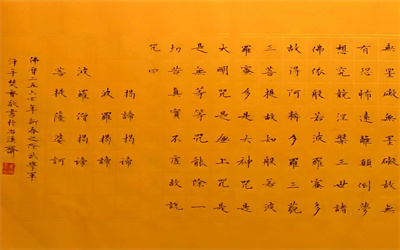 無罣礙故無
有恐怖遠離顛倒夢
想究竟涅槃三世諸
佛依般若波羅蜜多
故得阿耨多羅三藐
三菩提故知般若波
羅蜜多是大神咒是
大明咒是無上咒
是無等等咒能除一
切苦真實不虛故說
咒曰
揭諦揭諦
波羅僧揭諦
菩提薩婆訶
佛曆二五六七年新春之際武學軍
淨手焚香敬書於